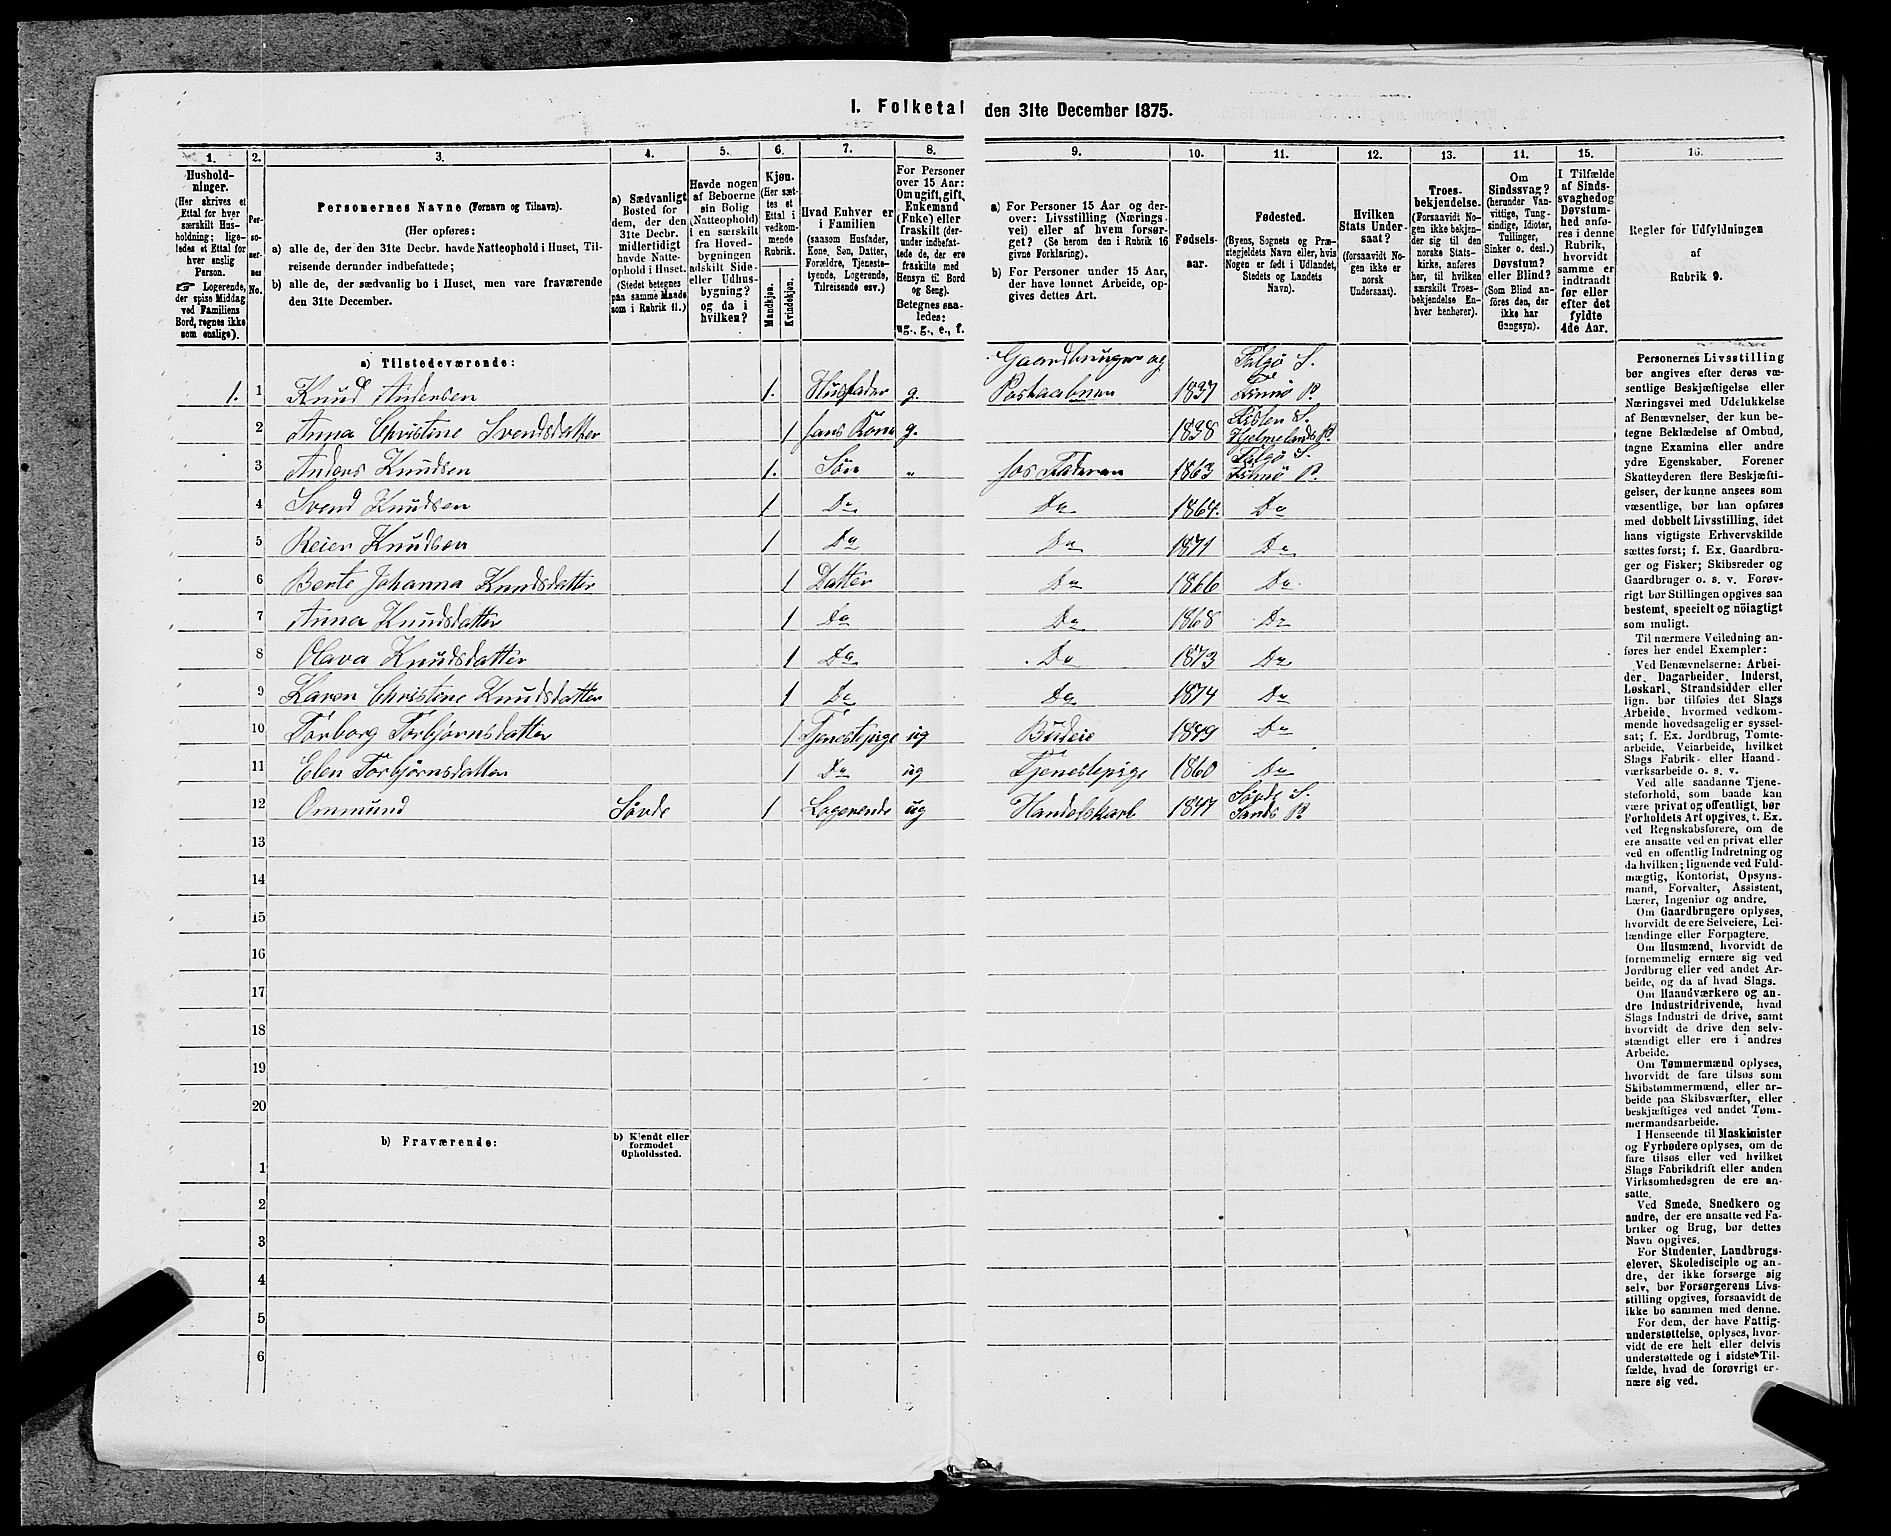 I. Folketal den 31te December 1875.
1. 2. 3. 4. 5. 6. 7. 8. 9. 10. 11. 12. 13. 14. 15. 16.
Hushold-
ninger.
(Her skrives et
Ettal for hver
særskilt Hus-
holdning; lige-
ledes et Ettal for
hver enslig
Person.
☞ Logerende,
der spise Middag
ved Familiens
Bord, regnes ikke
som enslige).
Per-
so-
ner-
nes
No.
Personernes Navne (Fornavn og Tilnavn).
(Her opføres:
a) alle de, der den 31te Decbr. havde Natteophold i Huset, Til-
reisende derunder indbefattede;
b) alle de, der sædvanlig bo i Huset, men vare fraværende
den 31te December.
a) Sædvanligt
Bosted for
dem, der den
31te Decbr.
midlertidigt
havde Natte-
ophold i Huset.
(Stedet betegnes
paa samme Maade
som i Rubrik 11.)
Havde nogen
af Beboerne
sin Bolig
(Natteophold)
i en særskilt
fra Hoved-
bygningen
adskilt Side-
eller Udhus-
bygning?
og da i
hvilken?
Kjøn.
(Her sæt-
tes et
Ettal i
vedkom-
mende
Rubrik.
Mandkjøn.
Kvindekjøn.
Hvad Enhver er
i Familien
(saasom Husfader,
Kone, Søn, Datter,
Forældre, Tjeneste-
tyende, Logerende,
Tilreisende osv.)
For Personer
over 15 Aar:
Om ugift, gift,
Enkemand
(Enke) eller
fraskilt (der-
under indbefat-
tede de, der ere
fraskilte med
Hensyn til Bord
og Seng).
Betegnes saa-
ledes:
ug., g., e., f.
a) For Personer 15 Aar og der-
over: Livsstilling (Nærings-
vei) eller af hvem forsør-
get? (Se herom den i Rubrik 16
givne Forklaring).
b) For Personer under 15 Aar,
der have lønnet Arbeide, op-
gives dettes Art.
Fødsels-
aar.
Fødested.
(Byens, Sognets og Præ-
stegjeldets Navn eller, hvis
Nogen er født i Udlandet,
Stedets og Landets
Navn).
Hvilken
Stats Under-
saat?
(forsaavidt No-
gen ikke er
norsk
Undersaat).
Troes-
bekjendelse.
(Forsaavidt No-
gen ikke bekjen-
der sig til den
norske Stats-
kirke, anføres
her, til hvilken
særskilt Troes-
bekjendelse En-
hver henhører).
Om
Sindssvag?
(herunder Van-
vittige, Tung-
sindige, Idioter,
Tullinger,
Sinker o. desl.)
Døvstum?
eller Blind?
(Som Blind an-
føres den, der
ikke har
Gangsyn).
I Tilfælde
af Sinds-
svaghed og
Døvstum-
hed anfø-
res i denne
Rubrik,
hvorvidt
samme er
indtraadt
før eller
efter det
fyldte
4de Aar.
Regler før Udfyldningen
af
Rubrik 9.
a) Tilstedeværende:
1. 1 Knud Andersen 1. Husfader g. Gaardbruger og Postaabner 1837 S. P.
2 Anna Christine Svendsdatter 1 hans Kone g. 1838 S. Hjelmelands P.
3 Anders Knudsen 1. Søn „ hos Faderen 1863 S. P.
4 Svend Knudsen 1 Do Do 1864. Do
5 Reier Knudsen 1 Do Do 1871 Do
6 Berte Johanna Knudsdatter 1 Datter Do 1866 Do
7 Anna Knudsdatter 1 Do Do 1868 Do
8 Olava Knudsdatter 1 Do Do 1873 Do
9 Karen Christine Knudsdatter 1 Do Do 1874 Do
10 Torborg Torbjørnsdatter 1 Tjenestepige ug Budeie 1849 Do
11 Elen Torbjørnsdatter 1 Do ug Tjenestepige 1860 Do
12 Ommund Søvde 1 Logerende ug Handelskarl 1847 Søvde S. Sands P.
13
14
15
16
17
18
19
20
b) Fraværende:
b) Kjendt eller
formodet
Opholdssted.
1
2
3
4
5
6
Personernes Livsstilling
bør angives efter deres væ-
sentlige Beskjæftigelse eller
Næringsvei med Udelukkelse
af Benævnelser, der kun be-
tegne Beklædelse af Ombud,
tagne Examina eller andre
ydre Egenskaber. Forener
Skatteyderen flere Beskjæfti-
gelser, der kunne ansees som
væsentlige, bør han opføres
med dobbelt Livsstilling, idet
hans vigtigste Erhvervskilde
sættes først; f. Ex. Gaardbru-
ger og Fisker; Skibsreder og
Gaardbruger o. s. v. Forøv-
rigt bør Stillingen opgives saa
bestemt, specielt og nöiagtigt
som muligt.
Til nærmere Veiledning an-
føres her endel Exempler:
Ved Benævnelserne: Arbei-
der, Dagarbeider, Inderst,
Løskarl, Strandsidder eller
lign. bør tilføies det Slags
Arbeide, hvormed vedkom-
mende hovedsagelig er syssel-
sat; f. Ex. Jordbrug, Tomte-
arbeide, Veiarbeide, hvilket
Slags Fabrik- eller Haand-
værksarbeide o. s. v.
Ved alle saadanne Tjene-
steforhold, som baade kan
være privat og offentligt, bør
Forholdets Art opgives, t. Ex.
ved Regnskabsførere, om de
ere ansatte ved en privat eller
ved en offentlig Indretning og
da hvilken; lignende ved Fuld-
mægtig, Kontorist, Opsyns-
mand, Forvalter, Assistent,
Lærer, Ingeniør og andre.
Om Gaardbrugere oplyses,
hvorvidt de ere Selveiere, Lei-
lændinge eller Forpagtere.
Om Husmænd, hvorvidt de
fornemmelig ernære sig ved
Jordbrug eller ved andet Ar-
beide, og da af hvad Slags.
Om Haandværkere og an-
dre Industridrivende, hvad
Slags Industri de drive, samt
hvorvidt de drive den selv-
stændigt eller ere i andres
Arbeide.
Om Tømmermænd oplyses,
hvorvidt de fare tilsøs som
Skibstømmermænd, eller ar-
beide paa Skibsværfter, eller
beskjæftiges ved andet Tøm-
mermandsarbeide.
I Henseende til Maskinister
og Fyrbødere oplyses, om de
fare tilsøs eller ved hvilket
Slags Fabrikdrift eller anden
Virksomhedsgren de ere an-
satte.
Ved Smede, Snedkere og
andre, der ere ansatte ved Fa-
briker og Brug, bør dettes
Navn opgives.
For Studenter, Landbrugs-
elever, Skoledisciple og an-
dre, der ikke forsørge sig
selv, bør Forsørgerens Livs-
stilling opgives, forsaavidt de
ikke bo sammen med denne.
For dem, der have Fattig-
understøttelse, oplyses, hvor-
vidt de ere helt eller delvis
understøttede og i sidste Til-
fælde, hvad de forøvrigt er-
nære sig ved.